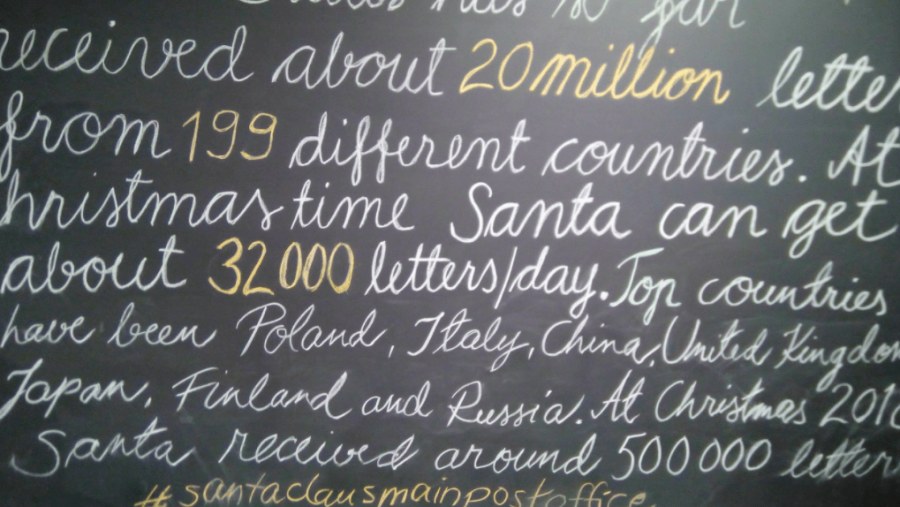 has so far
received about 20 million lette
from 199 different countries. At
hristmas time Santa can get
about 32 000 letters/day. Top countries
have been Poland, Italy, China, United Kingdom
Japan, Finland and Russia. At Christmas
Santa received around 500 000 letter
#santaclausmainpostoffice